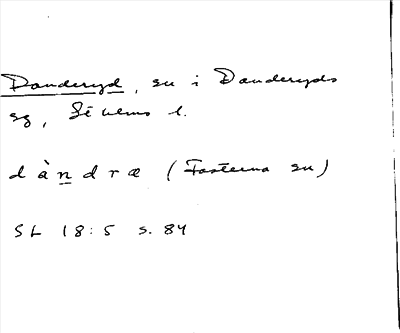 Danderyd, sn i Danderyds
sg, St uhms l.
dàndræ (Fasterna sn)
SL 18:5 s. 84